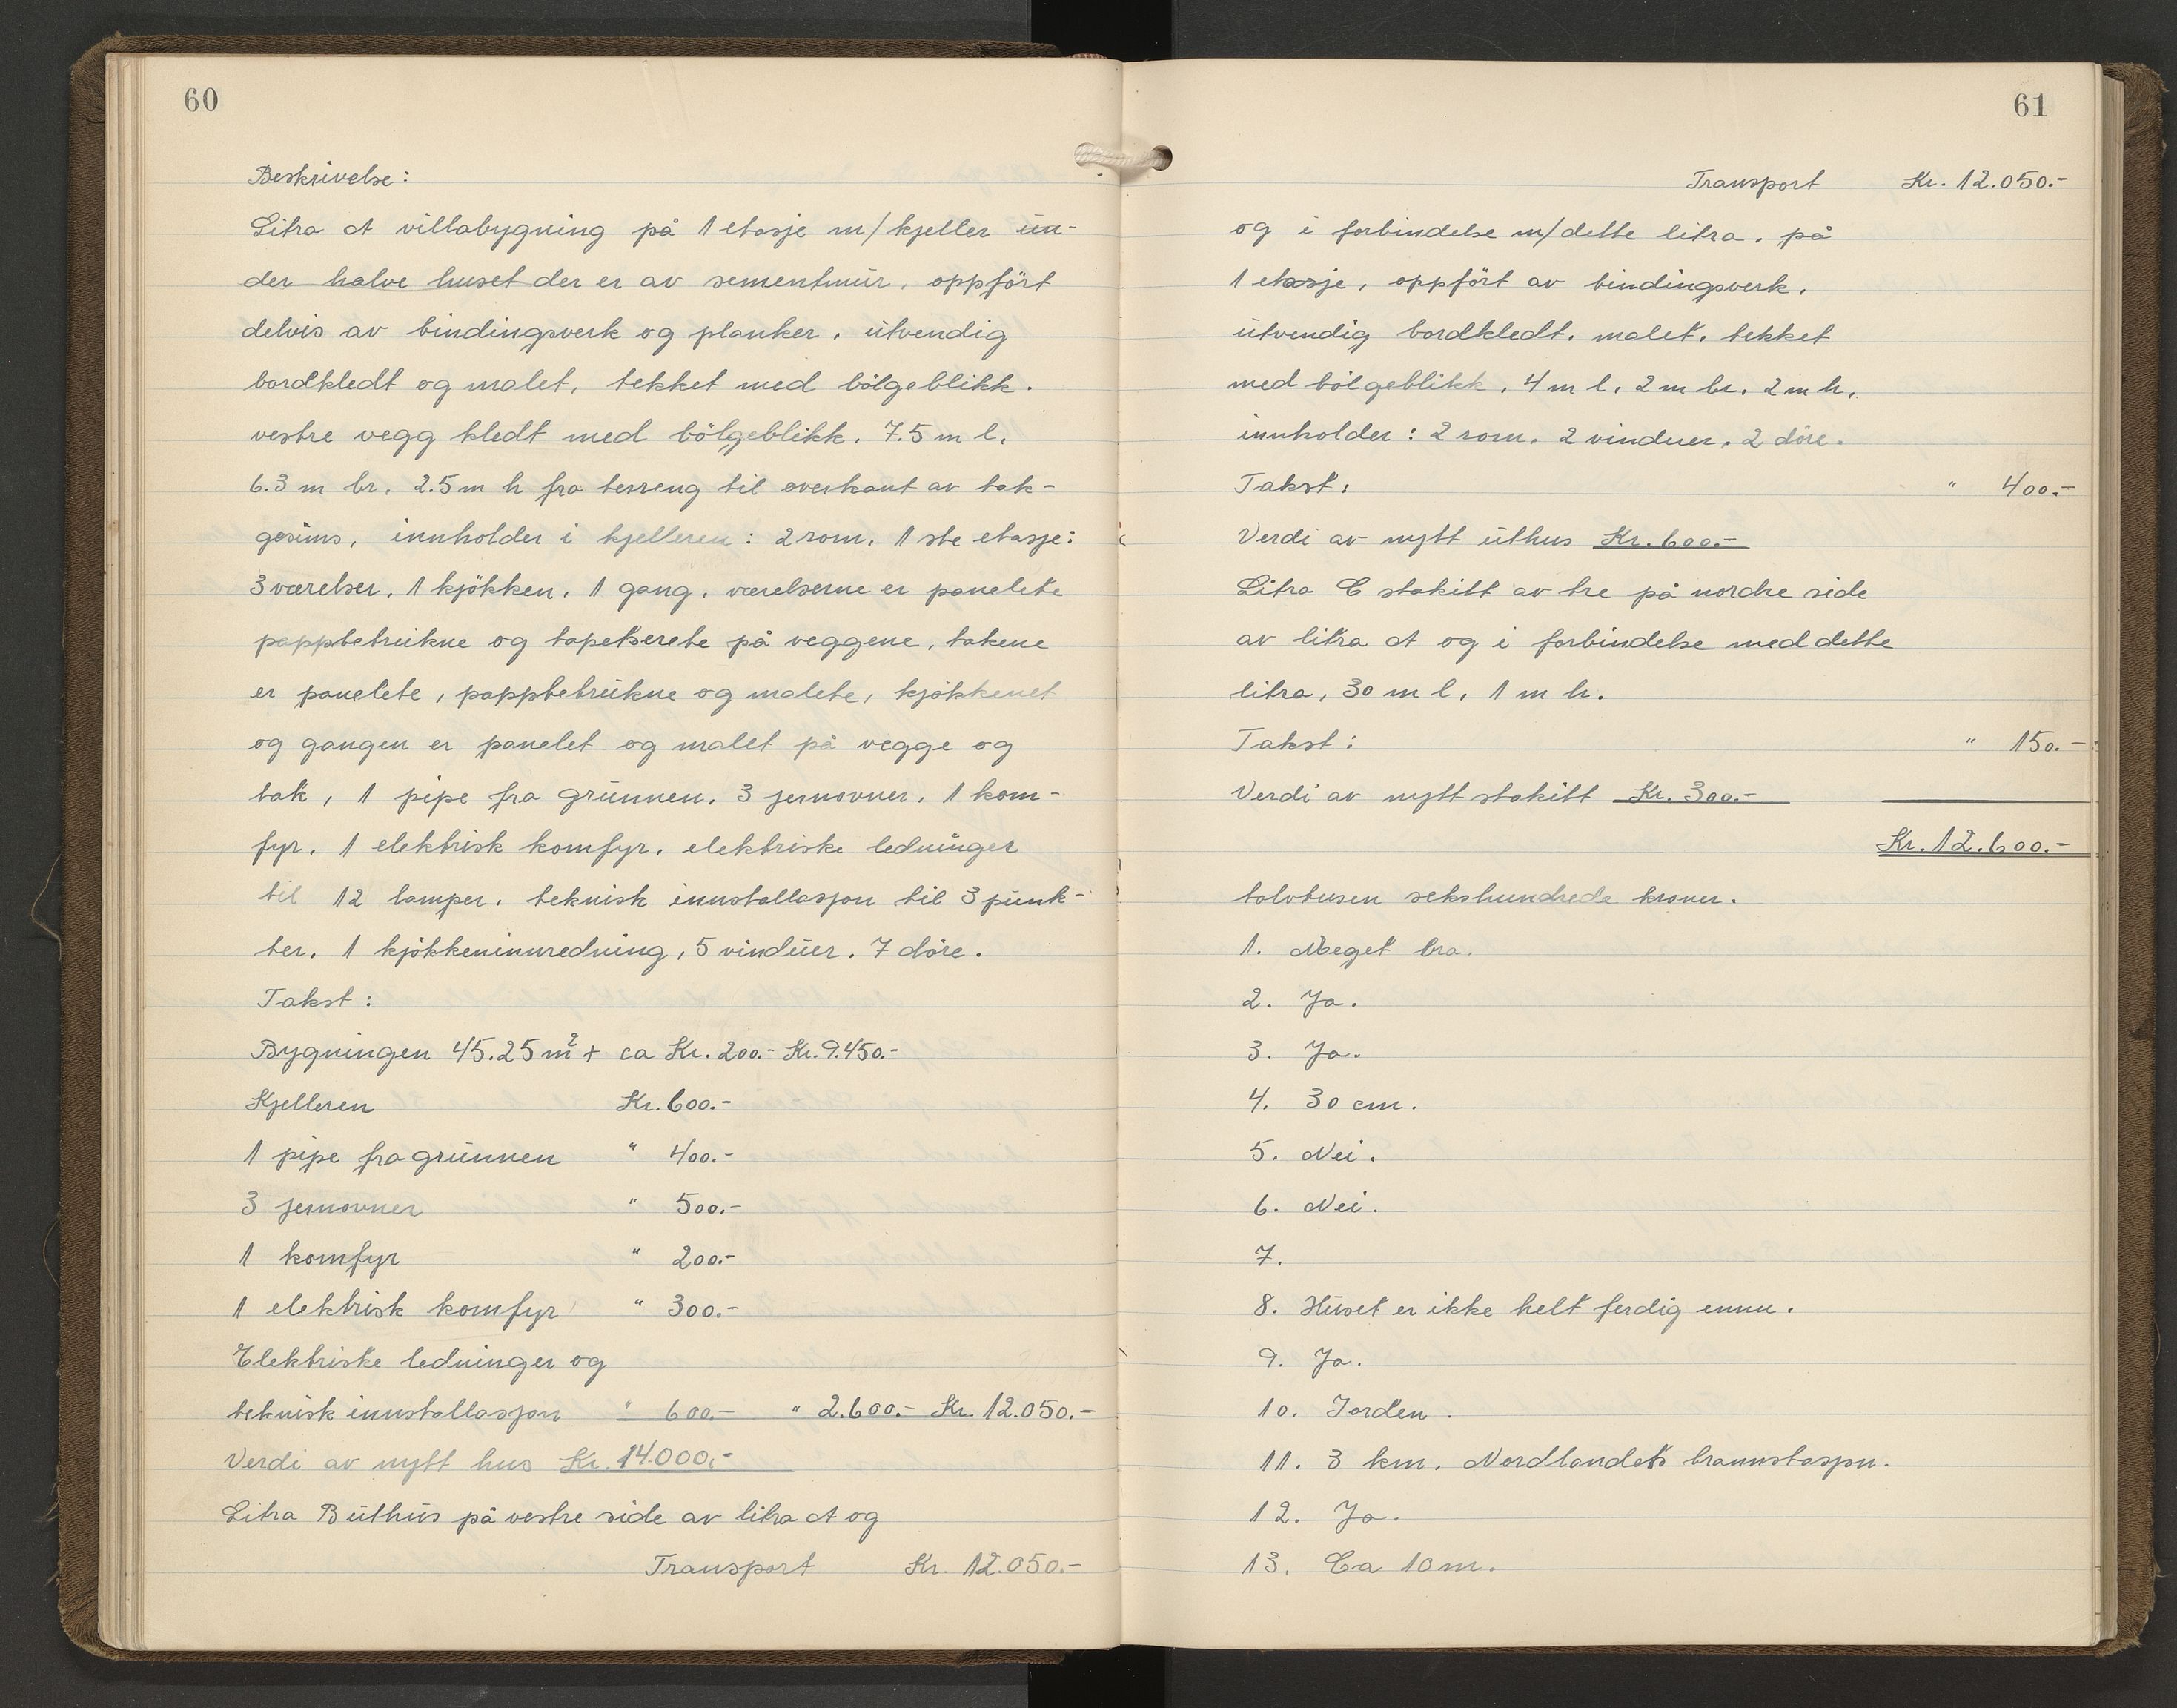 60
Beskrivelse:
Litra A villabygning på 1 etasje m/kjeller un-
der halve huset der er av sementmur, oppført
delvis av bindingsverk og planker, utvendig
bordkledt og malet, tekket med bölgeblikk.
vestre vegg kledt med bölgeblikk. 7.5 m l.
6.3 m br. 2.5 m h fra terreng til overkant av tak-
gesims, innholder i kjelleren: 2 rom, 1ste etasje:
3 værelser, 1 kjökken, 1 gang, værelserne er panelete
pappbetrukne og tapetserete på veggene, takene
er panelete, pappbetrukne og malete, kjökkenet
og gangen er panelet og malet på vegge og
tak, 1 pipe fra grunnen, 3 jernovner, 1 kom-
fyr, 1 elektrisk komfyr, elektriske ledninger
til 12 lamper, teknisk innstallasjon til 3 punk-
ter. 1 kjökkeninnredning, 5 vinduer. 7 döre.
Takst:
Bygningen 45.25 m² + ca Kr. 200.- Kr. 9.450.-
Kjelleren Kr. 600.-
1 pipe fra grunnen " 400.-
3 jernovner " 500.-
1 komfyr " 200.-
1 elektrisk komfyr " 300.-
Elektriske ledninger og
teknisk innstallasjon " 600.- " 2.600.- Kr. 12.050.-
Verdi av nytt hus Kr. 14.000.-
Litra B uthus på vestre side av litra A og
Transport Kr. 12.050.-
61
Transport Kr. 12.050.-
og i forbindelse m/dette litra, på
1 etasje, oppfört av bindingsverk,
utvendig bordkledt, malet, tekket
med bölgeblikk, 4 m l, 2 m br. 2 m h.
innholder: 2 rom, 2 vinduer, 2 döre.
Takst: " 400.-
Verdi av nytt uthus Kr. 600.-
Litra C stakitt av tre på nordre side
av litra A og i forbindelse med dette
litra, 30 m l, 1 m h.
Takst: " 150.-
Verdi av nytt stakitt Kr. 300.-
Kr. 12.600.-
tolvtusen sekshundrede kroner.
1. Meget bra.
2. Ja.
3. Ja.
4. 30 cm.
5. Nei.
6. Nei.
7.
8. Huset er ikke helt ferdig ennu.
9. Ja.
10. Jorden.
11. 3 km. Nordlandets brannstasjon.
12. Ja.
13. Ca 10 m.